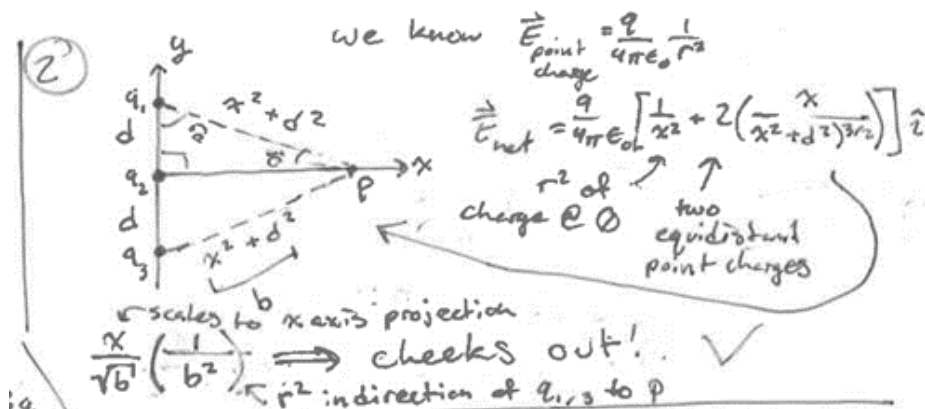 2
we know E⃗ point charge = q/4πε₀ 1/r²
y
q₁
x² + d²
d
E⃗net = q/4πε₀ [1/x² + 2(x/(x²+d²)^3/2)] î
q₂
P
x
d
q₃
x² + d²
b
r² of
charge @ 0
two
equidistant
point charges
scales to x axis projection
x/√b (1/b²) ⟹ checks out! ✓
r² in direction of q₁,₃ to P